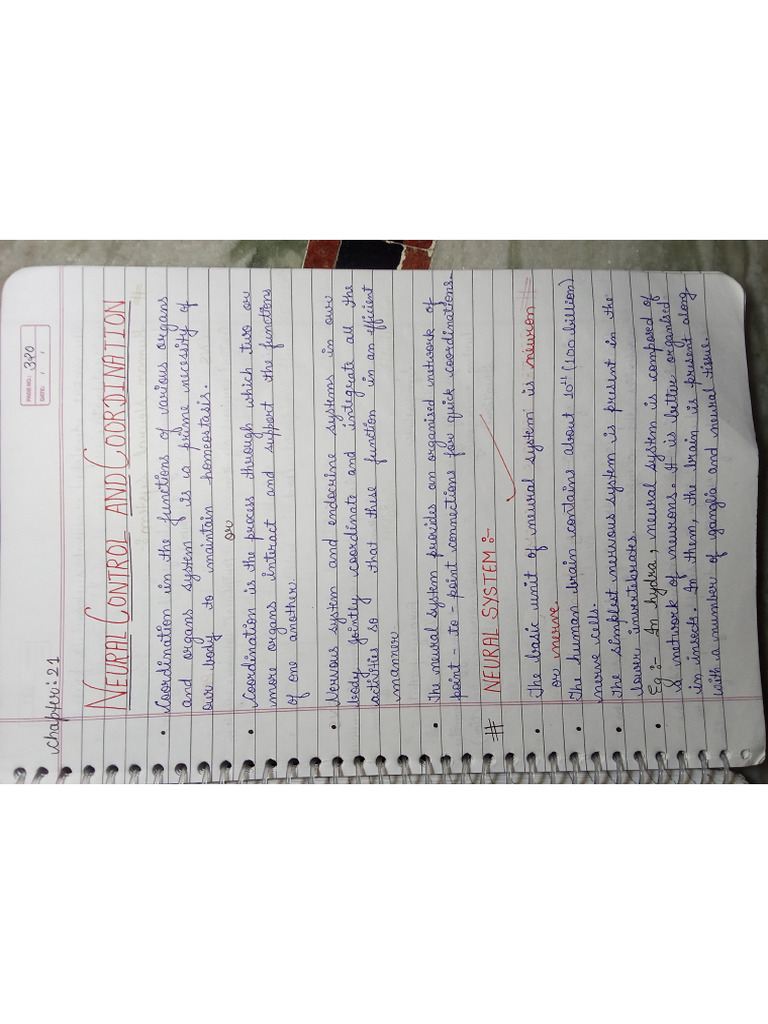 PAGE NO.: 320
DATE: / /
chapter:21
NEURAL CONTROL AND COORDINATION
• Coordination in the functions of various organs
and organs system is a prime necessity of
our body to maintain homeostasis.
or
• Coordination is the process through which two or
more organs interact and support the functions
of one another.
• Nervous system and endocrine systems in our
body jointly coordinate and integrate all the
activities so that these function in an efficient
manner
• The neural system provides an organised network of
point-to-point connections for quick coordinations.
# NEURAL SYSTEM:-
• The basic unit of neural system is neuron
or nerve.
• The human brain contains about 10¹¹ (100 billion)
nerve cells.
• The simplest nervous system is present in the
lower invertebrates.
Eg:- In hydra, neural system is composed of
a network of neurons. It is better organised
in insects. In them, the brain is present along
with a number of ganglia and neural tissue.